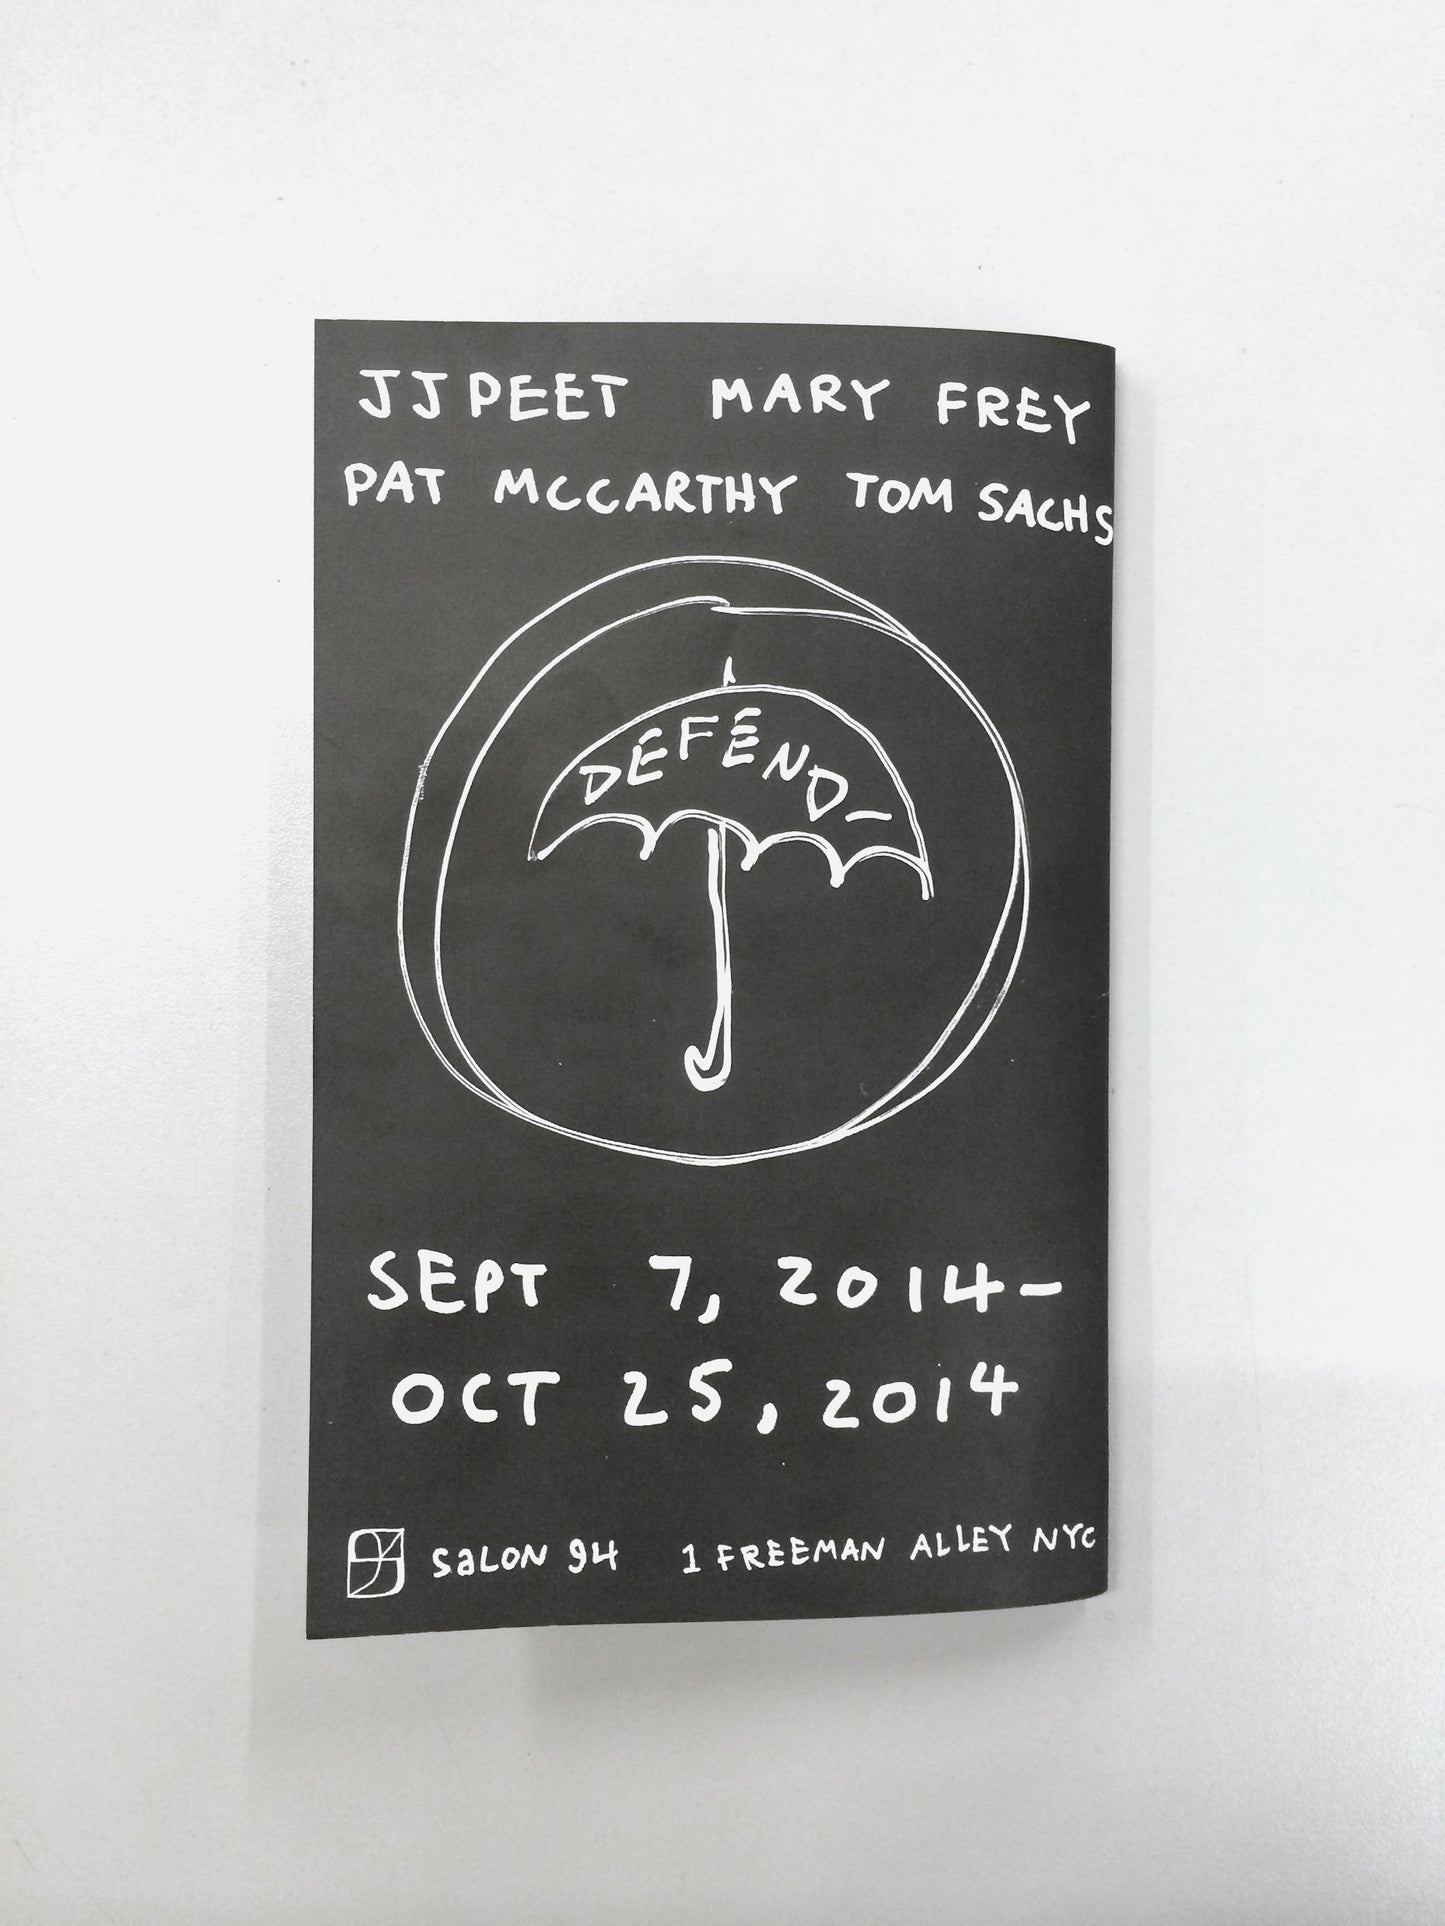 JJ PEET MARY FREY
PAT MCCARTHY TOM SACHS
DEFEND-
SEPT 7, 2014-
OCT 25, 2014
94 SaLON 94 1 FREEMAN ALLEY NYC